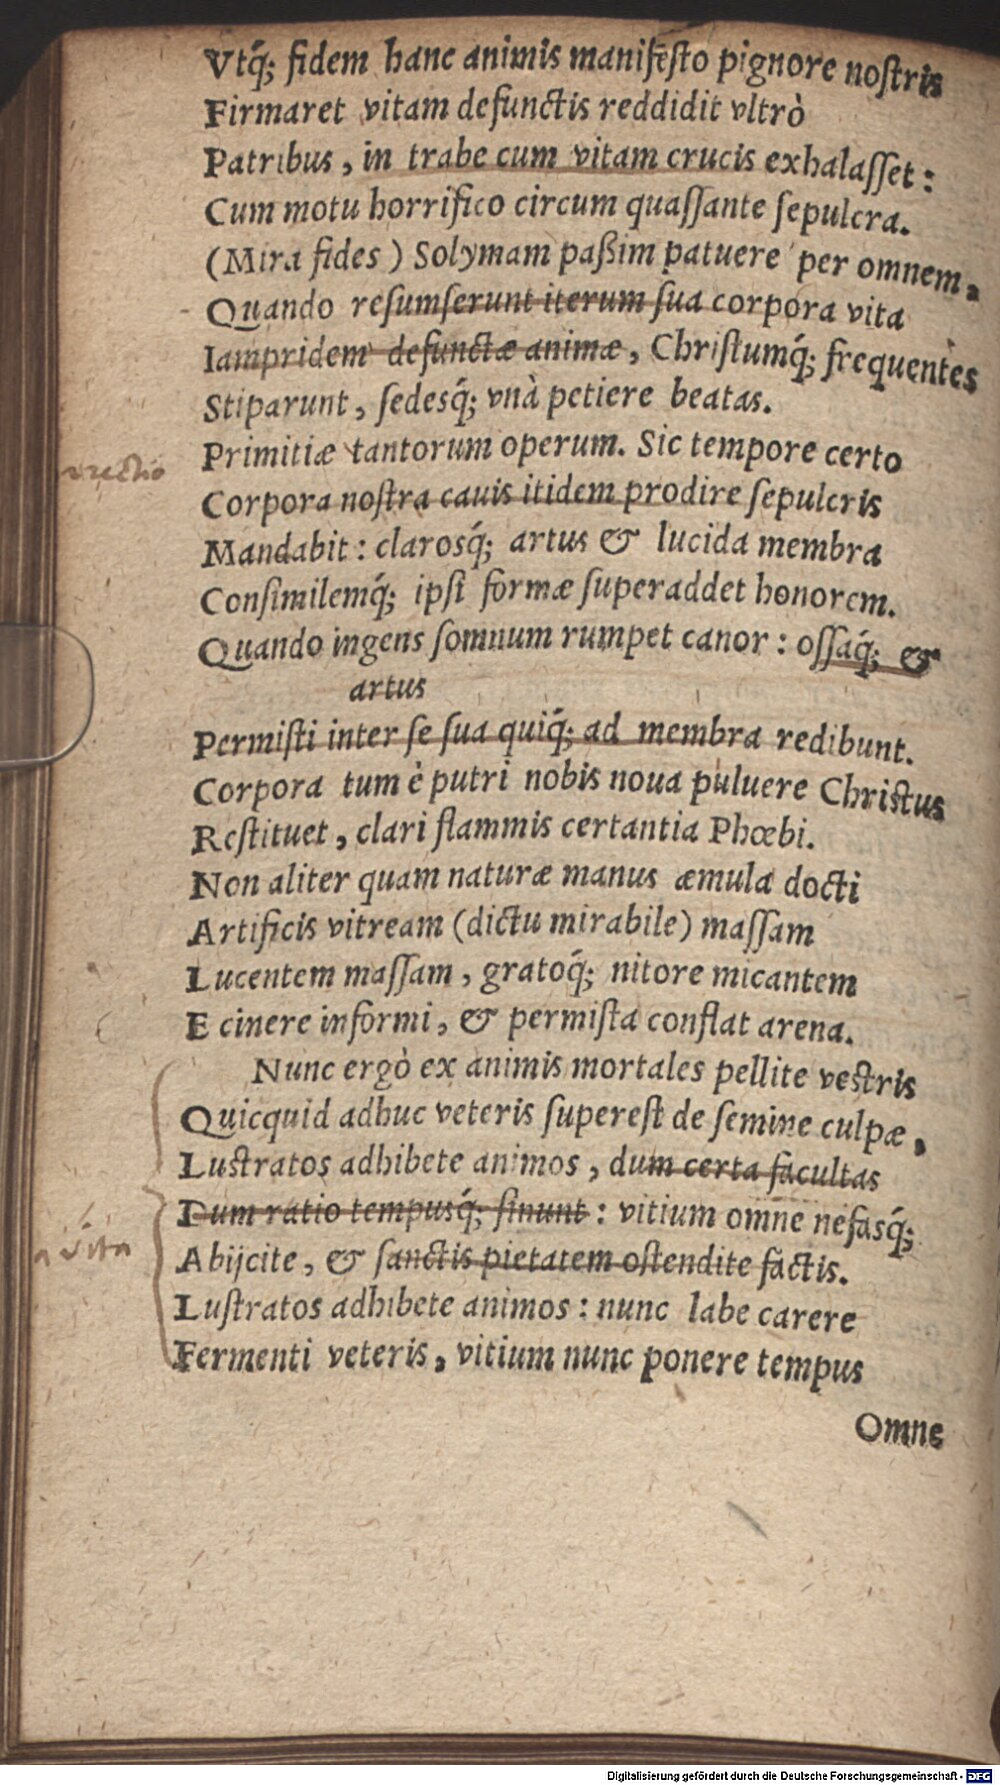 Vtq́; fidem hanc animis manifesto pignore nostris
Firmaret vitam defunctis reddidit vltrò
Patribus, in trabe cum vitam crucis exhalasset:
Cum motu horrifico circum quassante sepulcra.
(Mira fides) Solymam paßim patuere per omnem.
Quando resumserunt iterum sua corpora vita
Iampridem defunctæ animæ, Christumq́; frequentes
Stiparunt, sedesq́; vnà petiere beatas.
Primitiæ tantorum operum. Sic tempore certo
Corpora nostra cauis itidem prodire sepulcris
Mandabit: clarosq́; artus & lucida membra
Consimilemq́; ipsi formæ superaddet honorem.
Quando ingens somnum rumpet canor: ossaq́; &
artus
Permisti inter se sua quiq́; ad membra redibunt.
Corpora tum è putri nobis noua puluere Christus
Restituet, clari flammis certantia Phœbi.
Non aliter quam naturæ manus æmula docti
Artificis vitream (dictu mirabile) massam
Lucentem massam, gratoq́; nitore micantem
E cinere informi, & permista conflat arena.
Nunc ergò ex animis mortales pellite vestris
Quicquid adhuc veteris superest de semine culpæ,
Lustratos adhibete animos, dum certa facultas
Dum ratio tempusq́; sinunt: vitium omne nefasq́;
a vita
Abijcite, & sanctis pietatem ostendite factis.
Lustratos adhibete animos: nunc labe carere
Fermenti veteris, vitium nunc ponere tempus
Omne
Digitalisierung gefördert durch die Deutsche Forschungsgemeinschaft - DFG